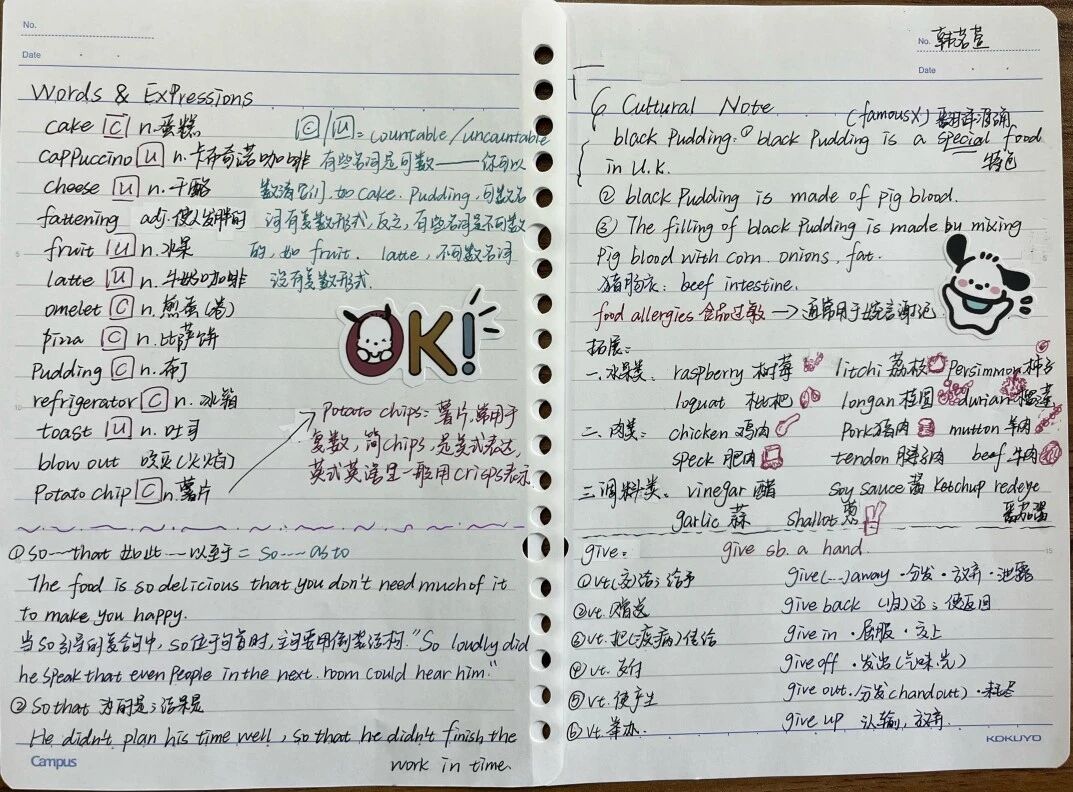 No.
Date
Words & Expressions
cake [C] n.蛋糕
[C]/[U] = countable/uncountable
cappuccino [U] n.卡布奇诺咖啡 有些名词是可数——你可以
cheese [U] n.干酪 数清它们,如cake. Pudding,可数名
fattening adj.使人发胖的 词有复数形式,反之,有些名词是不可数
fruit [U] n.水果 的,如 fruit. latte,不可数名词
latte [U] n.牛奶咖啡 没有复数形式.
omelet [C] n.煎蛋(卷)
OK!
Pizza [C] n.比萨饼
Pudding [C] n.布丁
refrigerator [C] n.冰箱
toast [U] n.吐司
blow out 吹灭(火焰)
Potato chip [C] n.薯片
Potato chips: 薯片,常用于
复数,简chips,是美式表达,
英式英语里一般用crisps表示
①so…that 如此…以至于 = so…as to
The food is so delicious that you don't need much of it
to make you happy.
当so引导的复合句中,so位于句首时,主句要用倒装结构."So loudly did
he speak that even People in the next room could hear him."
②So that 为的是;结果是
He didn't plan his time well, so that he didn't finish the
work in time.
Campus
No. 韩茗萱
Date
6 Cultural Note
(famous X) 翻译准确
black Pudding: ① black Pudding is a special food
in U.K. 特色
② black Pudding is made of Pig blood.
③ The filling of black Pudding is made by mixing
Pig blood with corn. onions, fat.
猪肠衣: beef intestine.
food allergies 食品过敏 → 通常用于
拓展:
一.水果类: raspberry 树莓 litchi 荔枝 Persimmon 柿子
loquat 枇杷 longan 桂圆 durian 榴莲
二.肉类: chicken 鸡肉 Pork 猪肉 mutton 羊肉
speck 肥肉 tendon 腱子肉 beef 牛肉
三.调料类: vinegar 醋 Soy sauce 酱 Ketchup redeye
garlic 蒜 Shallot 葱 番茄酱
give: give sb. a hand.
①vt.(交)给;给予 give(…)away ·分发·放弃·泄露
②vt.赠送 give back (归)还;使返回
③vt.把(疾病)传给 give in ·屈服·交上
④vt.交付 give off ·发出(气味.光)
⑤vt.使产生 give out./分发(hand out)·耗尽
⑥vt.举办. give up 认输,放弃.
KOKUYO